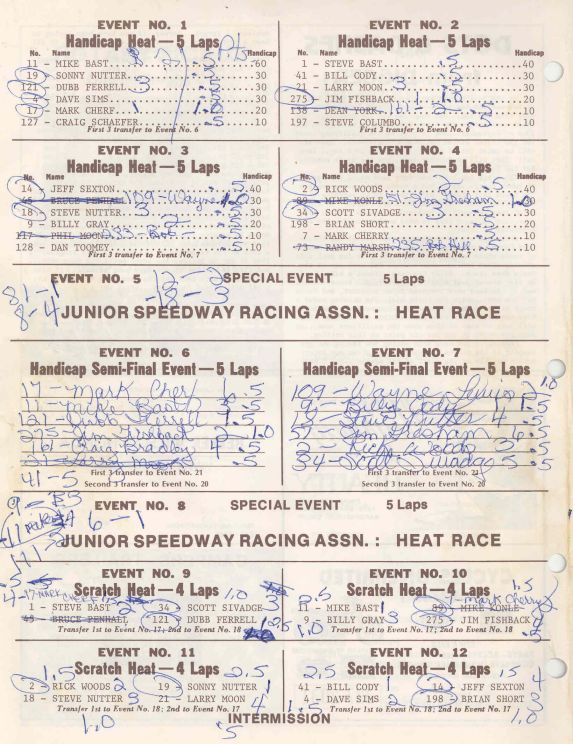 EVENT NO. 1
Handicap Heat — 5 Laps Pts
No. Name Handicap
11 - MIKE BAST 2 .5 60
19 - SONNY NUTTER .5 30
121 - DUBB FERRELL 3 .5 30
4 - DAVE SIMS .5 30
17 - MARK CHERF 1 1.0 20
127 - CRAIG SCHAEFER .5 10
First 3 transfer to Event No. 6
EVENT NO. 2
Handicap Heat — 5 Laps
No. Name Handicap
1 - STEVE BAST .5 40
41 - BILL CODY .5 30
21 - LARRY MOON 3 .5 30
275 - JIM FISHBACK 1 1.0 20
138 - DEAN YORK 161 - 2 .5 10
197 - STEVE COLUMBO .5 10
First 3 transfer to Event No. 6
EVENT NO. 3
Handicap Heat — 5 Laps
No. Name Handicap
14 - JEFF SEXTON .5 40
45 - BRUCE PENHALL 109 - Wayne 1.0 30
18 - STEVE NUTTER 3 .5 30
9 - BILLY GRAY 2 .5 20
117 - PHIL MOON 233 - Bob - .5 10
128 - DAN TOOMEY .5 10
First 3 transfer to Event No. 7
EVENT NO. 4
Handicap Heat — 5 Laps
No. Name Handicap
2 - RICK WOODS 2 .5 40
89 - MIKE KONLE 51 - Jim Gresham 1.0 30
34 - SCOTT SIVADGE 3 .5 30
198 - BRIAN SHORT .5 20
7 - MARK CHERRY .5 10
73 - RANDY MARSH 235 - .5 10
First 3 transfer to Event No. 7
EVENT NO. 5 SPECIAL EVENT 5 Laps
12 - 2
18 - 3
81 - 1
8 - 4
JUNIOR SPEEDWAY RACING ASSN. : HEAT RACE
EVENT NO. 6
Handicap Semi-Final Event — 5 Laps
17 - Mark Cherf 6 .5
11 - Mike Bast 3 .5
121 - Dubb Ferrell 1 .5
275 - Jim Fishback 2 1.0
161 - Craig Bradby 4 .5
21 - Larry Moon .5
41 - 5
First 3 transfer to Event No. 21
Second 3 transfer to Event No. 20
EVENT NO. 7
Handicap Semi-Final Event — 5 Laps
109 - Wayne 2 1.0
9 - Billy Gray 1 .5
18 - Steve Nutter 4 .5
51 - Jim Gresham 6 .5
2 - Rick Woods 3 .5
34 - Scott Sivadge 5 .5
First 3 transfer to Event No. 21
Second 3 transfer to Event No. 20
EVENT NO. 8 SPECIAL EVENT 5 Laps
6 - 1
JUNIOR SPEEDWAY RACING ASSN. : HEAT RACE
EVENT NO. 9
Scratch Heat — 4 Laps 1.0
17 - MARK CHERF 1.5
1 - STEVE BAST 2 34 - SCOTT SIVADGE 3
45 - BRUCE PENHALL 121 - DUBB FERRELL 1 2.5
Transfer 1st to Event No. 17; 2nd to Event No. 18
EVENT NO. 10
Scratch Heat — 4 Laps 1.5
7 - Mark Cherry 2
2.5 11 - MIKE BAST 1 89 - MIKE KONLE
1.0 9 - BILLY GRAY 3 275 - JIM FISHBACK 4
Transfer 1st to Event No. 17; 2nd to Event No. 18 .5
EVENT NO. 11
1.5 Scratch Heat — 4 Laps 2.5
2 - RICK WOODS 2 19 - SONNY NUTTER 1
18 - STEVE NUTTER 3 21 - LARRY MOON 4
Transfer 1st to Event No. 18; 2nd to Event No. 17
1.0 .5
EVENT NO. 12
2.5 Scratch Heat — 4 Laps .5
41 - BILL CODY 1 14 - JEFF SEXTON 4
4 - DAVE SIMS 2 198 - BRIAN SHORT 3
Transfer 1st to Event No. 18; 2nd to Event No. 17
1.5 1.0
INTERMISSION